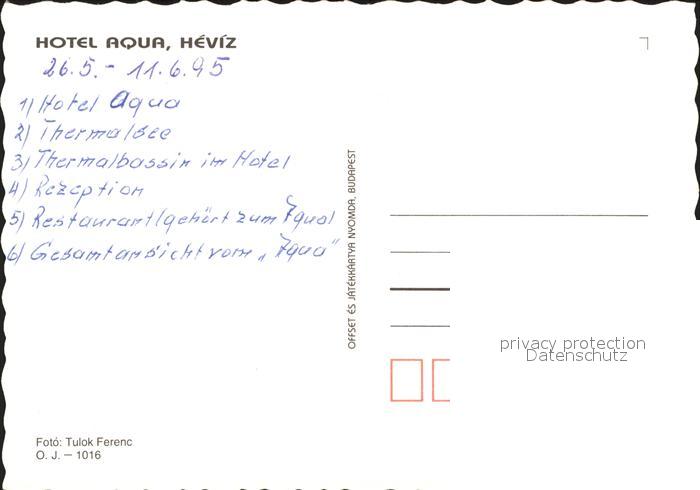 HOTEL AQUA, HÉVÍZ
26.5.- 11.6.95
1) Hotel Aqua
2) Thermalsee
3) Thermalbassin im Hotel
4) Rezeption
5) Restaurant (gehört zum Aqua)
6) Gesamtansicht vom „Aqua"
OFFSET ÉS JÁTÉKKÁRTYA NYOMDA, BUDAPEST
privacy protection
Datenschutz
Fotó: Tulok Ferenc
O. J. – 1016